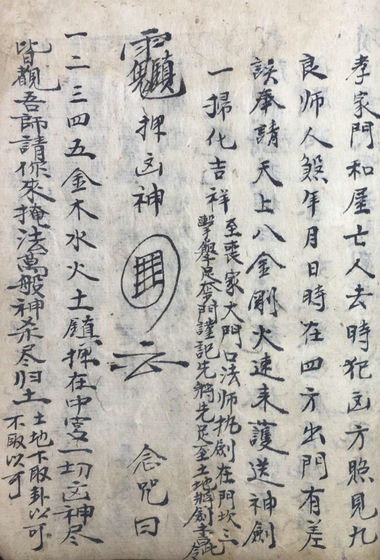 孝家門和屋亡人去時犯凶方照見九
良师人煞年月日時在四方出門有差
誤奉請天上八金剛火速来護送神劍
一掃化吉祥
至喪家大門口法师执劍在門坎三
足奎門謹記先将先足至土地将劍
押凶神 念咒曰
一二三四五金木水火土鎮押在中宮一切凶神尽
皆觀吾師請你來掩法萬般神杀尽归土
土地下取卦以可
不取以可